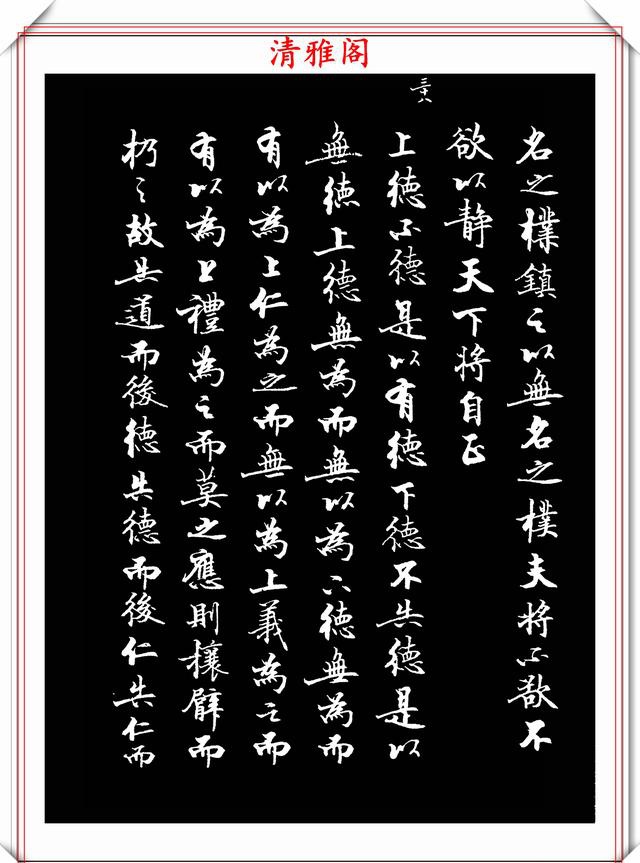 清雅阁
名之樸鎮之以無名之樸夫將不欲不
欲以静天下將自正
三十八
上德不德是以有德下德不失德是以
無德上德無為而無以為下德無為而
有以為上仁為之而無以為上義為之而
有以為上禮為之而莫之應則攘臂而
扔之故失道而後德失德而後仁失仁而